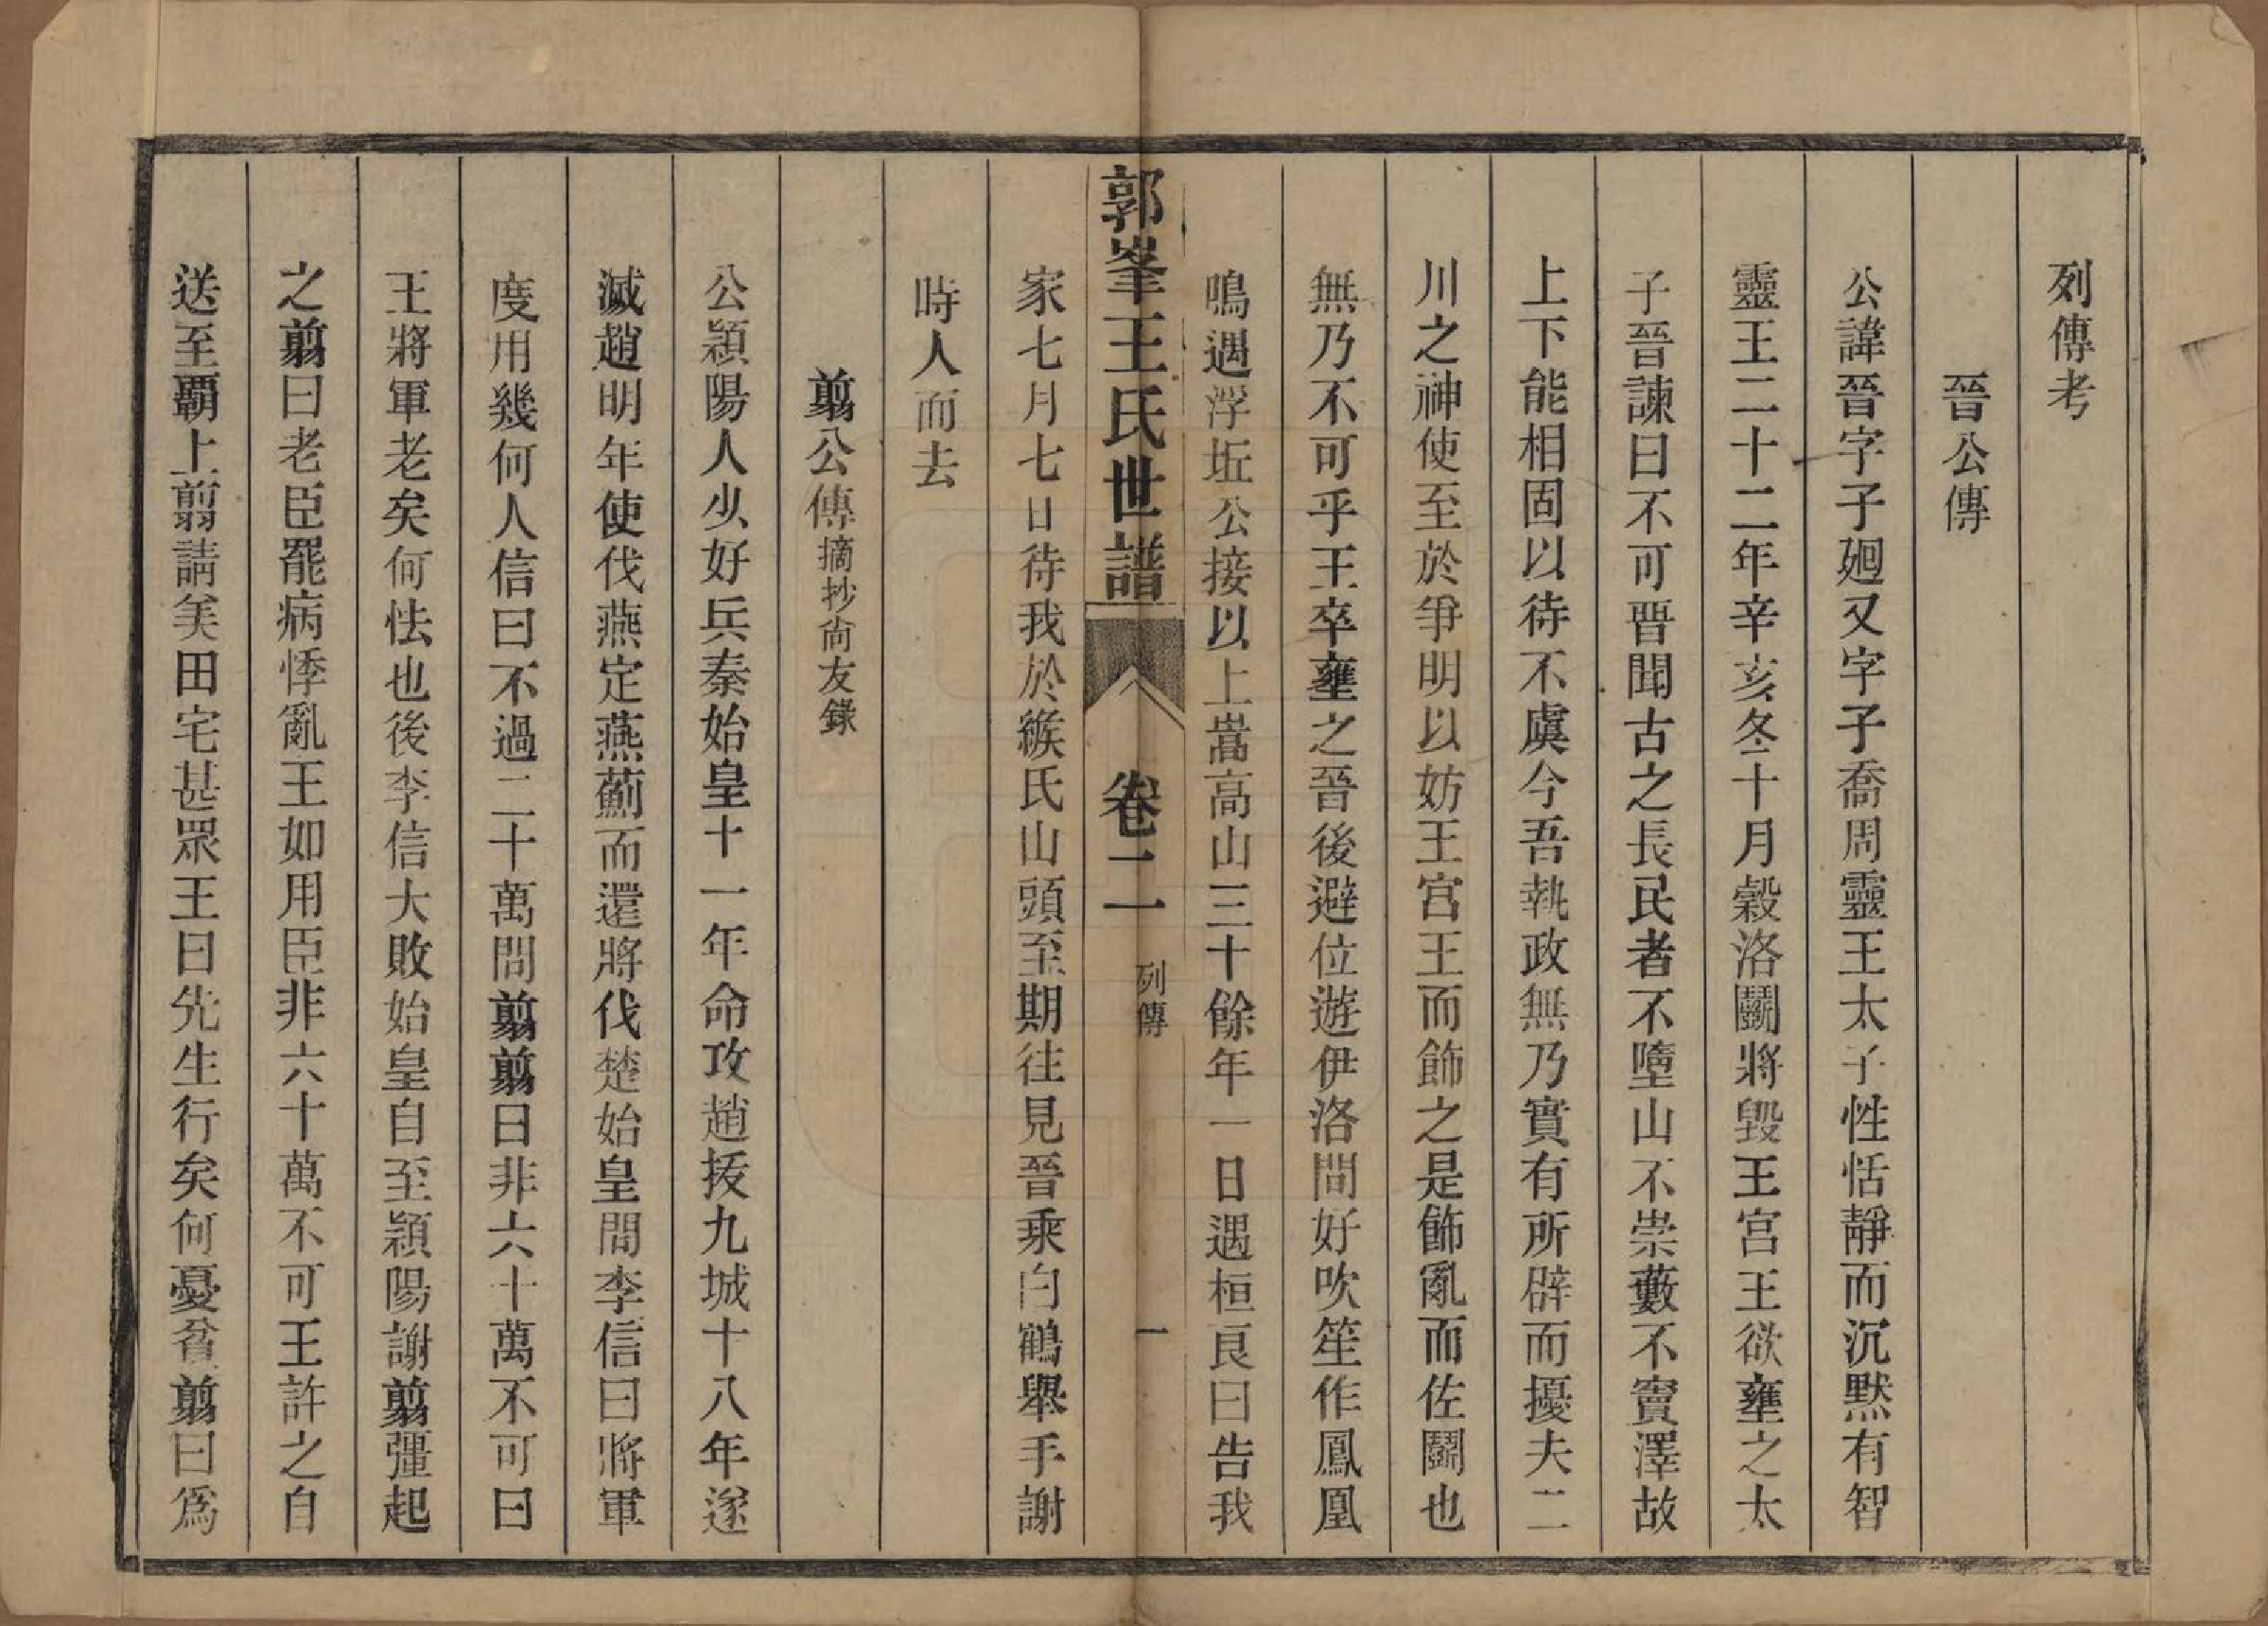 列傳考
晉公傳
公諱晉字子廻又字子喬周靈王太子性恬靜而沉默有智
靈王二十二年辛亥冬十月穀洛鬭將毀王宮王欲壅之太
子晉諫曰不可晋聞古之長民者不墮山不崇藪不竇澤故
上下能相固以待不虞今吾執政無乃實有所辟而擾夫二
川之神使至於爭明以妨王宮王而飾之是飾亂而佐鬭也
無乃不可乎王卒壅之晉後避位遊伊洛間好吹笙作鳳凰
鳴遇浮坵公接以上嵩高山三十餘年一日遇桓良曰告我
郭峯王氏世譜 卷二 列傳 一
家七月七日待我於緱氏山頭至期往見晉乘白鶴舉手謝
時人而去
翦公傳摘抄尙友錄
公潁陽人少好兵秦始皇十一年命攻趙拔九城十八年遂
滅趙明年使伐燕定燕薊而還將伐楚始皇問李信曰將軍
度用幾何人信曰不過二十萬問翦翦曰非六十萬不可曰
王將軍老矣何怯也後李信大敗始皇自至潁陽謝翦彊起
之翦曰老臣罷病悸亂王如用臣非六十萬不可王許之自
送至覇上翦請美田宅甚眾王曰先生行矣何憂貧翦曰爲